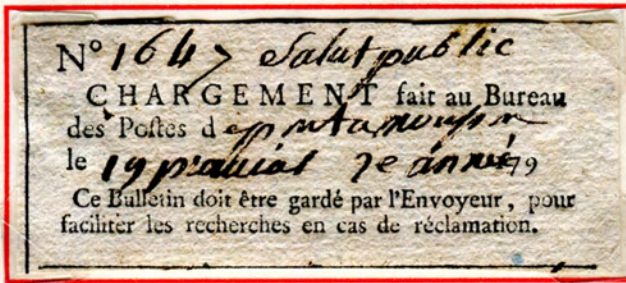 N° 1647 Salut public
CHARGEMENT fait au Bureau
des Postes d e pontamousson
le 19 prairial 2e année 79
Ce Bulletin doit être gardé par l'Envoyeur, pour
faciliter les recherches en cas de réclamation.